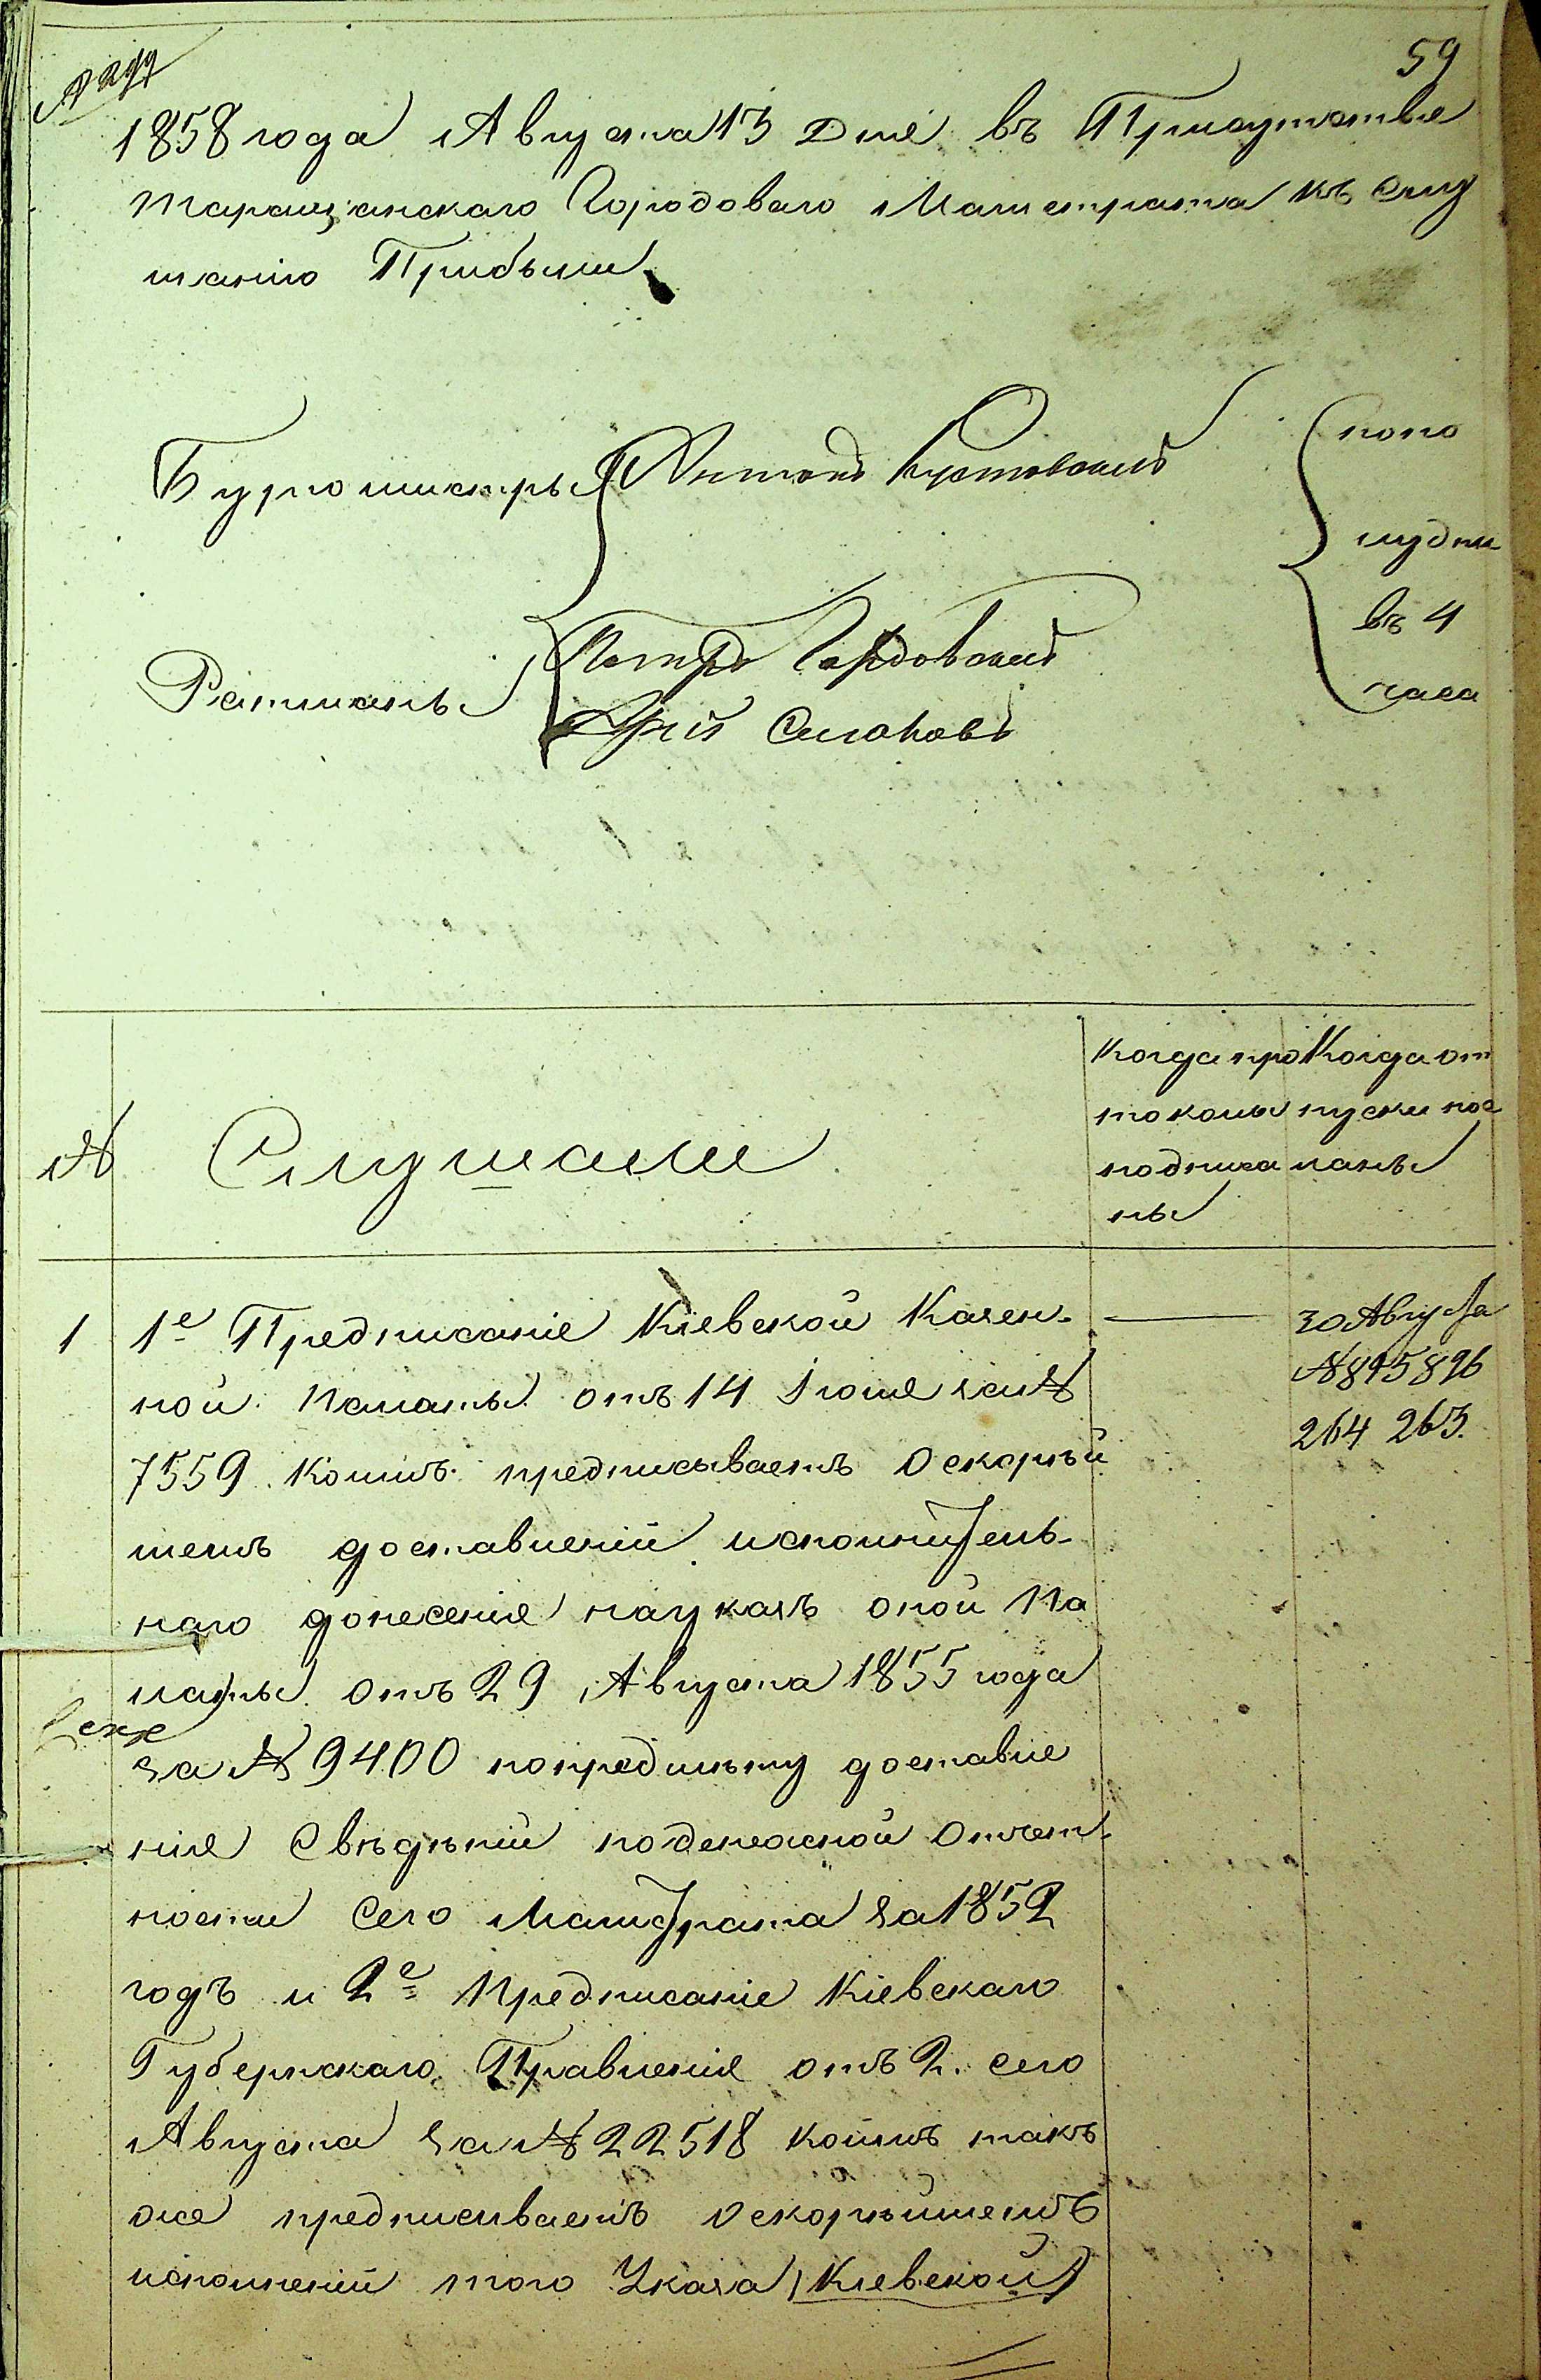 59
1858 года Августа 13 Дня въ Присутствіе
Таращанскаго Городоваго Магистрата къ Слу
шанію Прибыли
Бургомистры Антонъ
попо
лудни
въ 4
часа
Ратманы Петръ
№ Слушали
Когда про
токолы
подписа
ны
Когда от
пуски пос
ланы
1 1е Предписаніе Кіевской Казен-
ной Палаты отъ 14 Іюля за №
7559 коимъ предписываетъ О скорѣй
шемъ доставленіи исполнитель-
наго донесенія на указъ оной Па
латы отъ 29 Августа 1855 года
за № 9400 по предмѣту доставле
нія Свѣдѣній по денежной Отчет-
ности Сего Магистрата за 1852
годъ и 2е Предписаніе Кіевскаго
Губернскаго Правленія отъ 2. сего
Августа за № 22518 коимъ такъ
же предписиваетъ О скорѣйшемъ
исполненій того Указа Кіевской
30 Августа
№ 895 896
264 263.